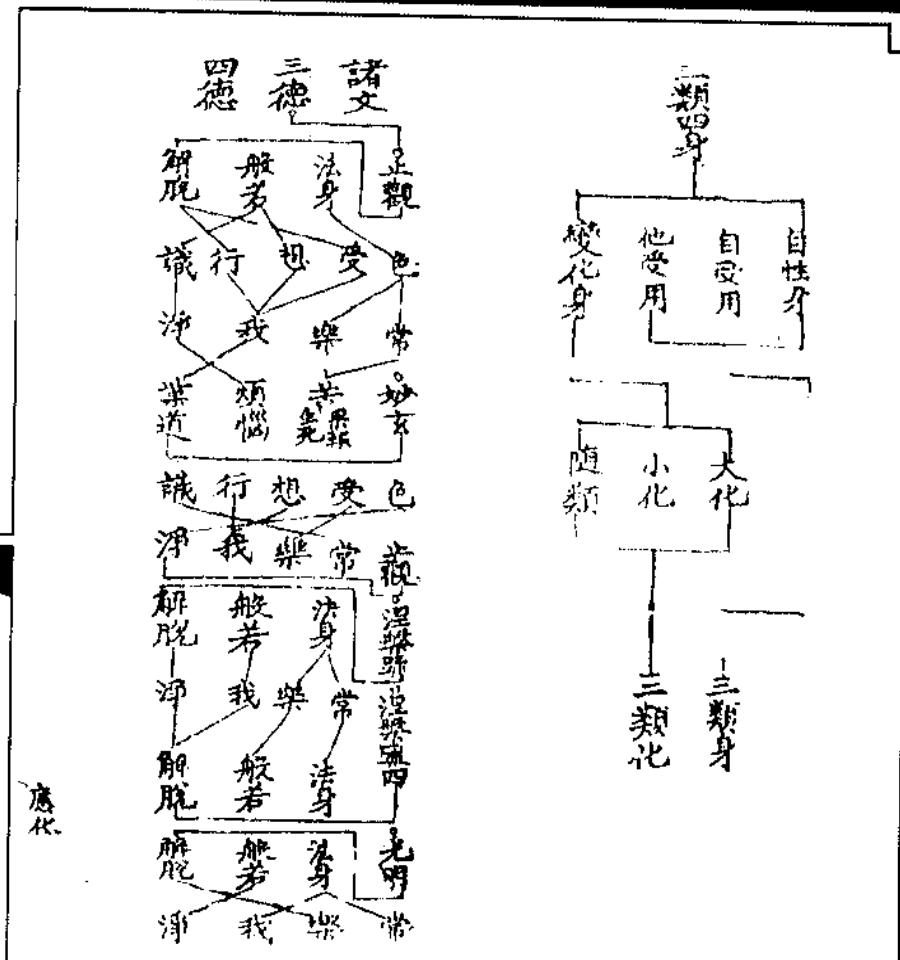 三類四身
自性身
自受用
他受用
變化身
大化
小化
隨類
三類身
三類化
諸文
三德
四德
正觀
法身
般若
解脫
色
受
想
行
識
常
樂
我
淨
妙玄
苦
煩惱
業道
色
受
想
行
識
止觀
常
樂
我
淨
法身
般若
解脫
常
樂
我
淨
法身
般若
解脫
光明
法身
般若
解脫
常
樂
我
淨
應化